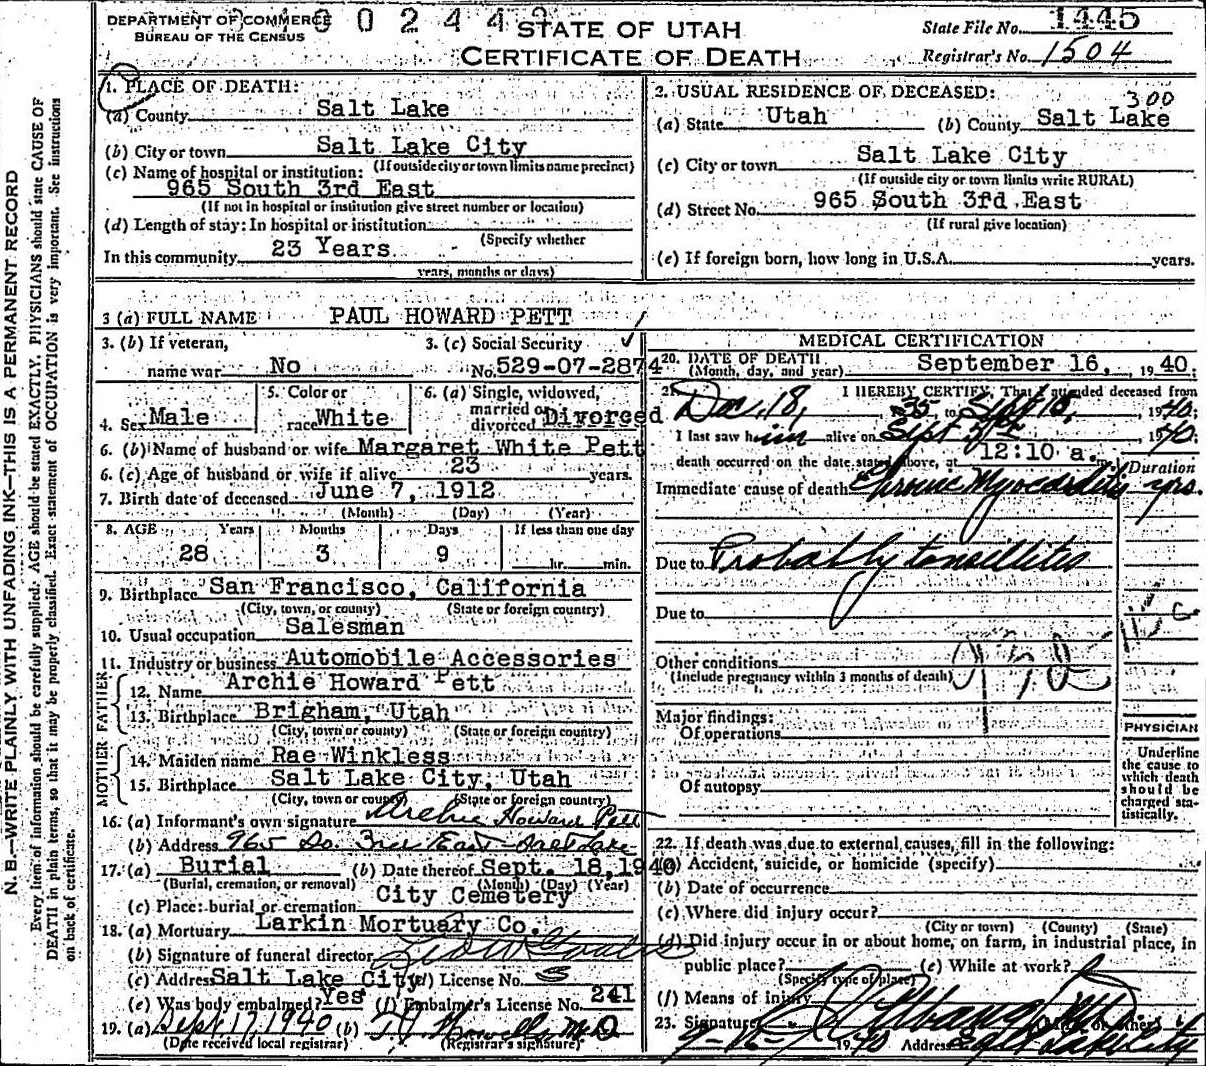 DEPARTMENT OF COMMERCE
BUREAU OF THE CENSUS
STATE OF UTAH
CERTIFICATE OF DEATH
State File No. 1445
Registrar's No. 1504
1. PLACE OF DEATH:
(a) County Salt Lake
(b) City or town Salt Lake City
(If outside city or town limits name precinct)
(c) Name of hospital or institution:
965 South 3rd East
(If not in hospital or institution give street number or location)
(d) Length of stay: In hospital or institution
(Specify whether
In this community 23 Years
years, months or days)
2. USUAL RESIDENCE OF DECEASED:
300
(a) State Utah (b) County Salt Lake
(c) City or town Salt Lake City
(If outside city or town limits write RURAL)
(d) Street No. 965 South 3rd East
(If rural give location)
(e) If foreign born, how long in U.S.A. years.
3 (a) FULL NAME PAUL HOWARD PETT
3. (b) If veteran, 3. (c) Social Security
name war No No. 529-07-2874
4. Sex Male
5. Color or
race White
6. (a) Single, widowed,
married or
divorced Divorced
6. (b) Name of husband or wife Margaret White Pett
6. (c) Age of husband or wife if alive 23 years.
7. Birth date of deceased June 7, 1912
(Month) (Day) (Year)
8. AGE Years Months Days If less than one day
28 3 9 hr. min.
9. Birthplace San Francisco, California
(City, town, or county) (State or foreign country)
10. Usual occupation Salesman
11. Industry or business Automobile Accessories
FATHER
12. Name Archie Howard Pett
13. Birthplace Brigham, Utah
(City, town or county) (State or foreign country)
MOTHER
14. Maiden name Rae Winkless
15. Birthplace Salt Lake City, Utah
(City, town or county) (State or foreign country)
16. (a) Informant's own signature Archie Howard Pett
(b) Address 965 So. 3rd East Salt Lake
17. (a) Burial (b) Date thereof Sept. 18, 1940
(Burial, cremation, or removal) (Month) (Day) (Year)
(c) Place: burial or cremation City Cemetery
18. (a) Mortuary Larkin Mortuary Co.
(b) Signature of funeral director
(c) Address Salt Lake City (d) License No.
(e) Was body embalmed? Yes (f) Embalmer's License No. 241
19. (a) Sept 17, 1940 (b)
(Date received local registrar) (Registrar's signature)
MEDICAL CERTIFICATION
20. DATE OF DEATH
(Month, day, and year) September 16, 1940;
21. I HEREBY CERTIFY, That I attended deceased from
Dec, 18, 35, to Sept 15, 1940;
I last saw him alive on Sept 1940;
death occurred on the date stated above, at 12:10 a.m.
Duration
Immediate cause of death Chronic Myocarditis yrs.
Due to Probably tonsillitis
Due to
Other conditions
(Include pregnancy within 3 months of death)
Major findings:
Of operations
Of autopsy
PHYSICIAN
Underline
the cause to
which death
should be
charged sta-
tistically.
22. If death was due to external causes, fill in the following:
(a) Accident, suicide, or homicide (specify)
(b) Date of occurrence
(c) Where did injury occur?
(City or town) (County) (State)
(d) Did injury occur in or about home, on farm, in industrial place, in
public place? (e) While at work?
(Specify type of place)
(f) Means of injury
23. Signature
1940 Address Salt Lake City
N. B.—WRITE PLAINLY WITH UNFADING INK—THIS IS A PERMANENT RECORD
Every item of information should be carefully supplied. AGE should be stated EXACTLY. PHYSICIANS should state CAUSE OF
DEATH in plain terms, so that it may be properly classified. Exact statement of OCCUPATION is very important. See instructions
on back of certificate.